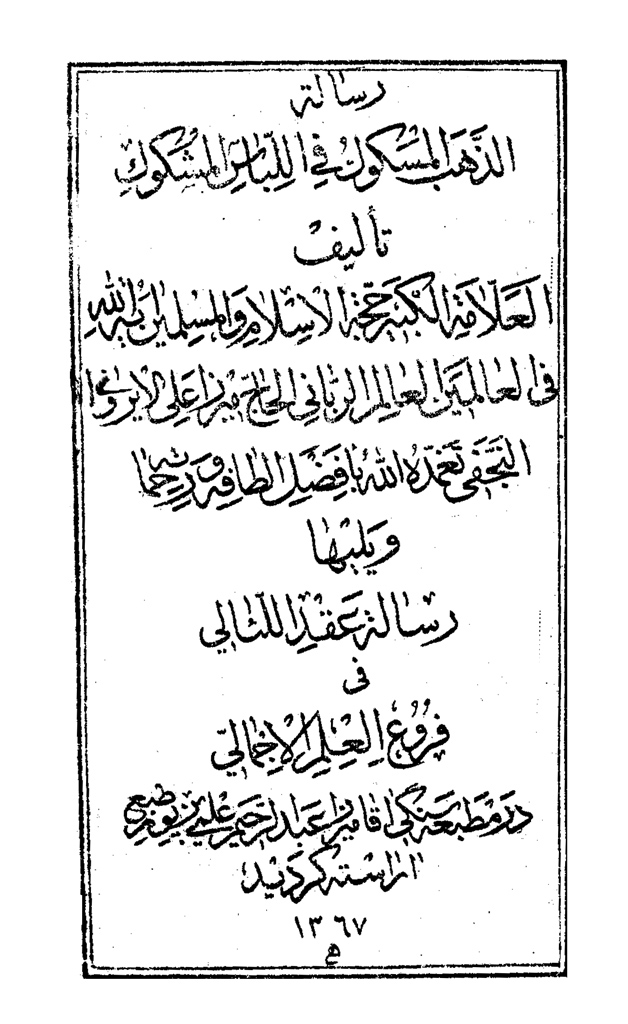 رسالة
الذَّهَب المَسكوكُ في اللِّباسِ المَشكوكِ
تأليف
العَلّامَةِ الكَبيرِ حُجَّة الاسْلامِ وَالمُسلمين آية اللهِ
في العالمَين العالِم الرَّبانيّ الحاج ميرزا عَلي الايرَواني
النَّجَفي تغَمَّدَهُ اللهُ بأفضَلِ الطافِه وَرحمَاته
وَيَليهَا
رسالة عَقدِ اللئالي
في
فرُوُعِ العِلمِ الاجمالِّي
دَر مَطبعه سَنگى اقا ميرزا عَبد الرَحيم علمى بزيور طبع
اراسته گرديد
١٣٦٧
ه